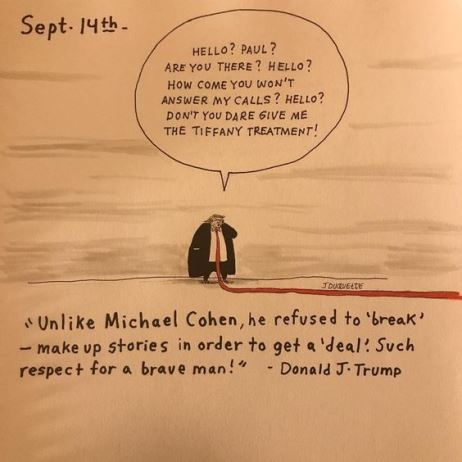 Sept. 14th -
HELLO? PAUL?
ARE YOU THERE? HELLO?
HOW COME YOU WON'T
ANSWER MY CALLS? HELLO?
DON'T YOU DARE GIVE ME
THE TIFFANY TREATMENT!
J. DUQUETTE
"Unlike Michael Cohen, he refused to 'break'
- make up stories in order to get a 'deal'. Such
respect for a brave man!" - Donald J. Trump